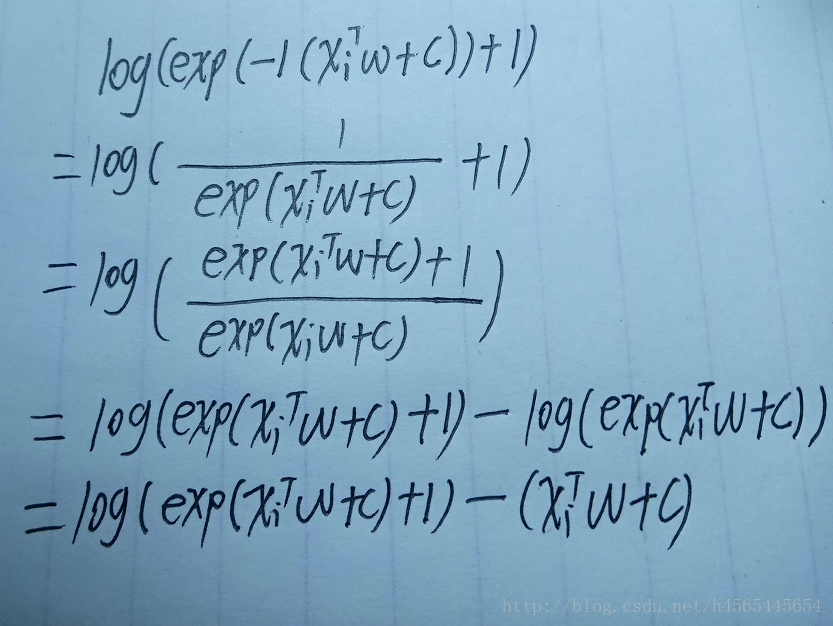 log(exp(-1(xᵢᵀw+c))+1)
= log( 1 / exp(xᵢᵀw+c) +1)
= log( exp(xᵢᵀw+c)+1 / exp(xᵢw+c) )
= log(exp(xᵢᵀw+c)+1) - log(exp(xᵢᵀw+c))
= log(exp(xᵢᵀw+c)+1) - (xᵢᵀw+c)
http://blog.csdn.net/h4565445654